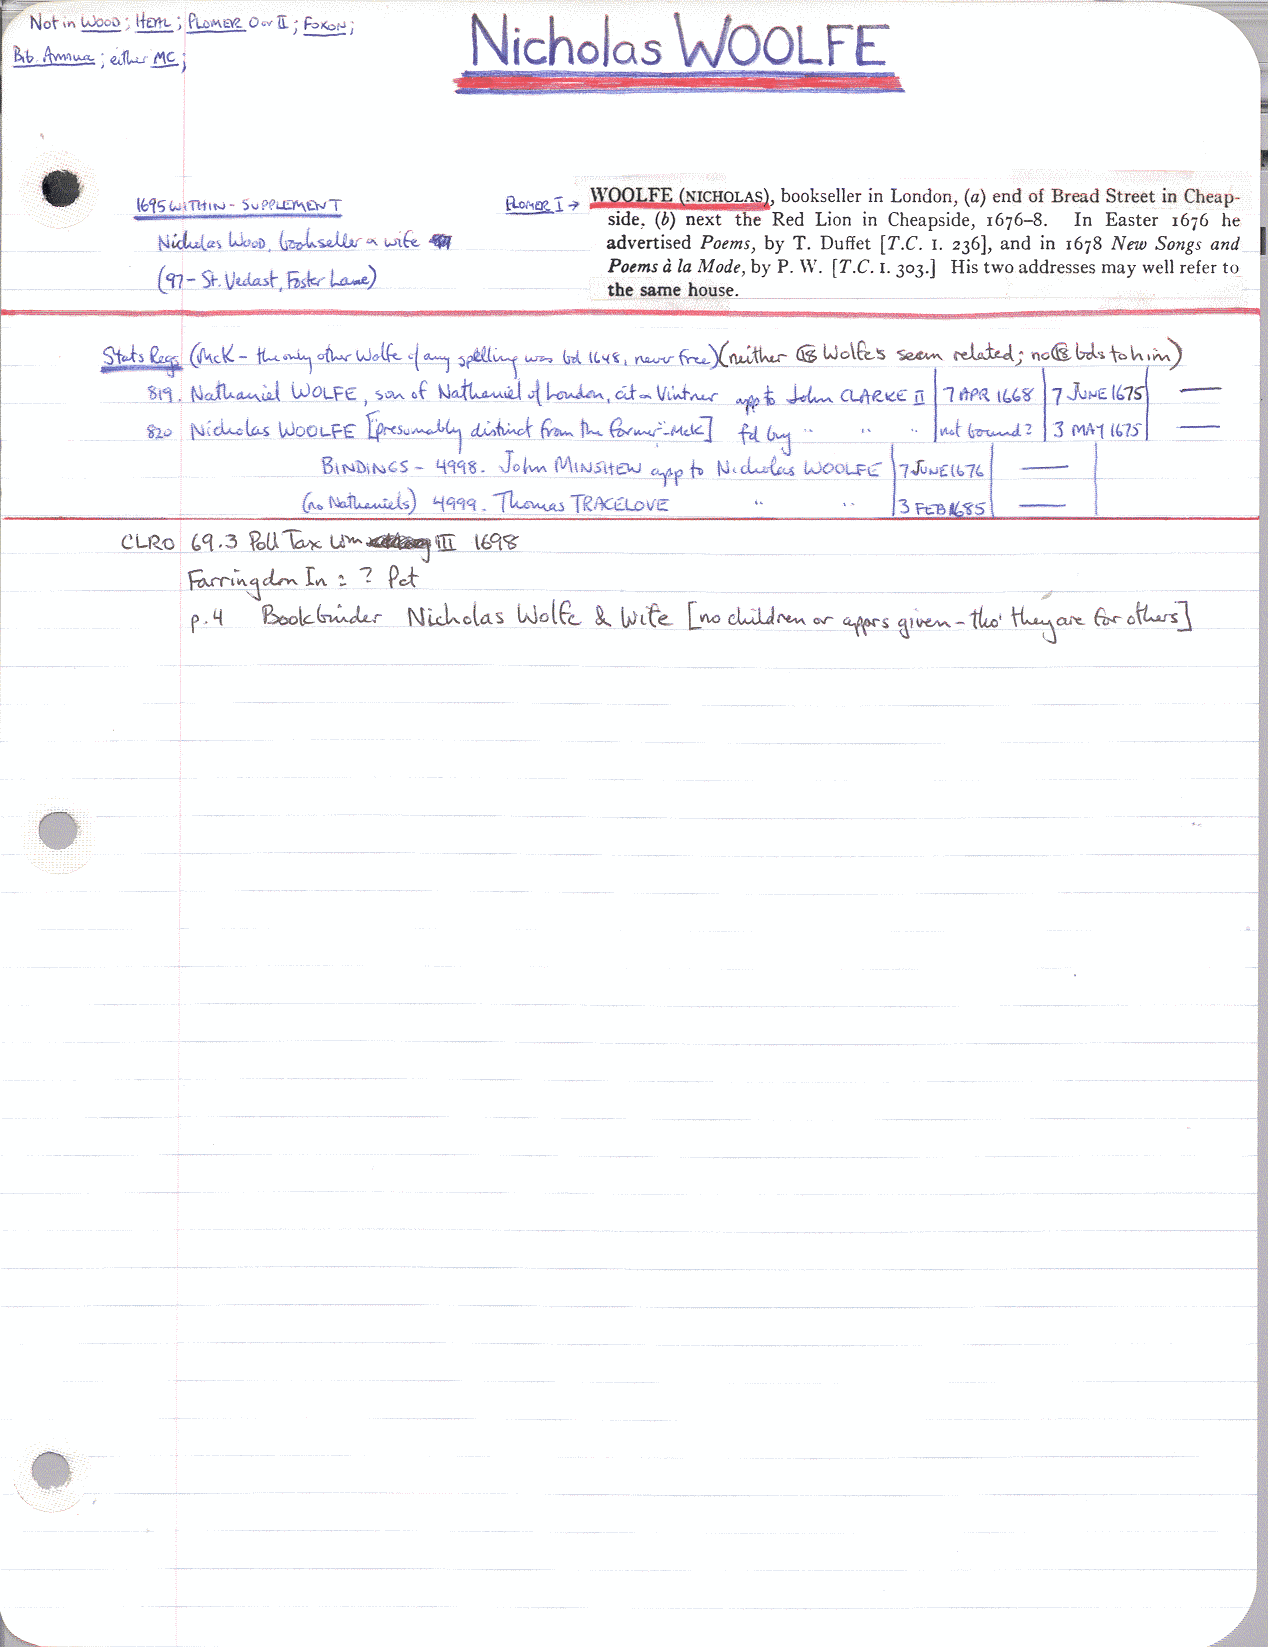 Not in Wood; HEAL; PLOMER 0 or II; FOXON;
Bib. Annua; either MC;
Nicholas WOOLFE
1695 WITHIN - SUPPLEMENT
Nicholas Wood, bookseller & wife
(97 - St. Vedast, Foster Lane)
PLOMER I → WOOLFE (NICHOLAS), bookseller in London, (a) end of Bread Street in Cheap-
side, (b) next the Red Lion in Cheapside, 1676–8. In Easter 1676 he
advertised Poems, by T. Duffet [T.C. I. 236], and in 1678 New Songs and
Poems à la Mode, by P. W. [T.C. I. 303.] His two addresses may well refer to
the same house.
Stats Regs (McK - the only other Wolfe of any spelling was bd 1648, never free) (neither Wolfe's seem related; no bds to him)
819. Nathaniel WOLFE, son of Nathaniel of London, cit & Vintner app to John CLARKE II 7 APR 1668 7 JUNE 1675 —
820 Nicholas WOOLFE [presumably distinct from the former - McK] fd by " " " not bound? 3 MAY 1675 —
BINDINGS - 4998. John MINSHEW app to Nicholas WOOLFE 7 JUNE 1676 —
(no Nathaniels) 4999. Thomas TRACELOVE " " 3 FEB 1685 —
CLRO 69.3 Poll Tax Wm III 1698
Farringdon In : ? Pct
p. 4 Bookbinder Nicholas Wolfe & Wife [no children or apprs given - tho' they are for others]